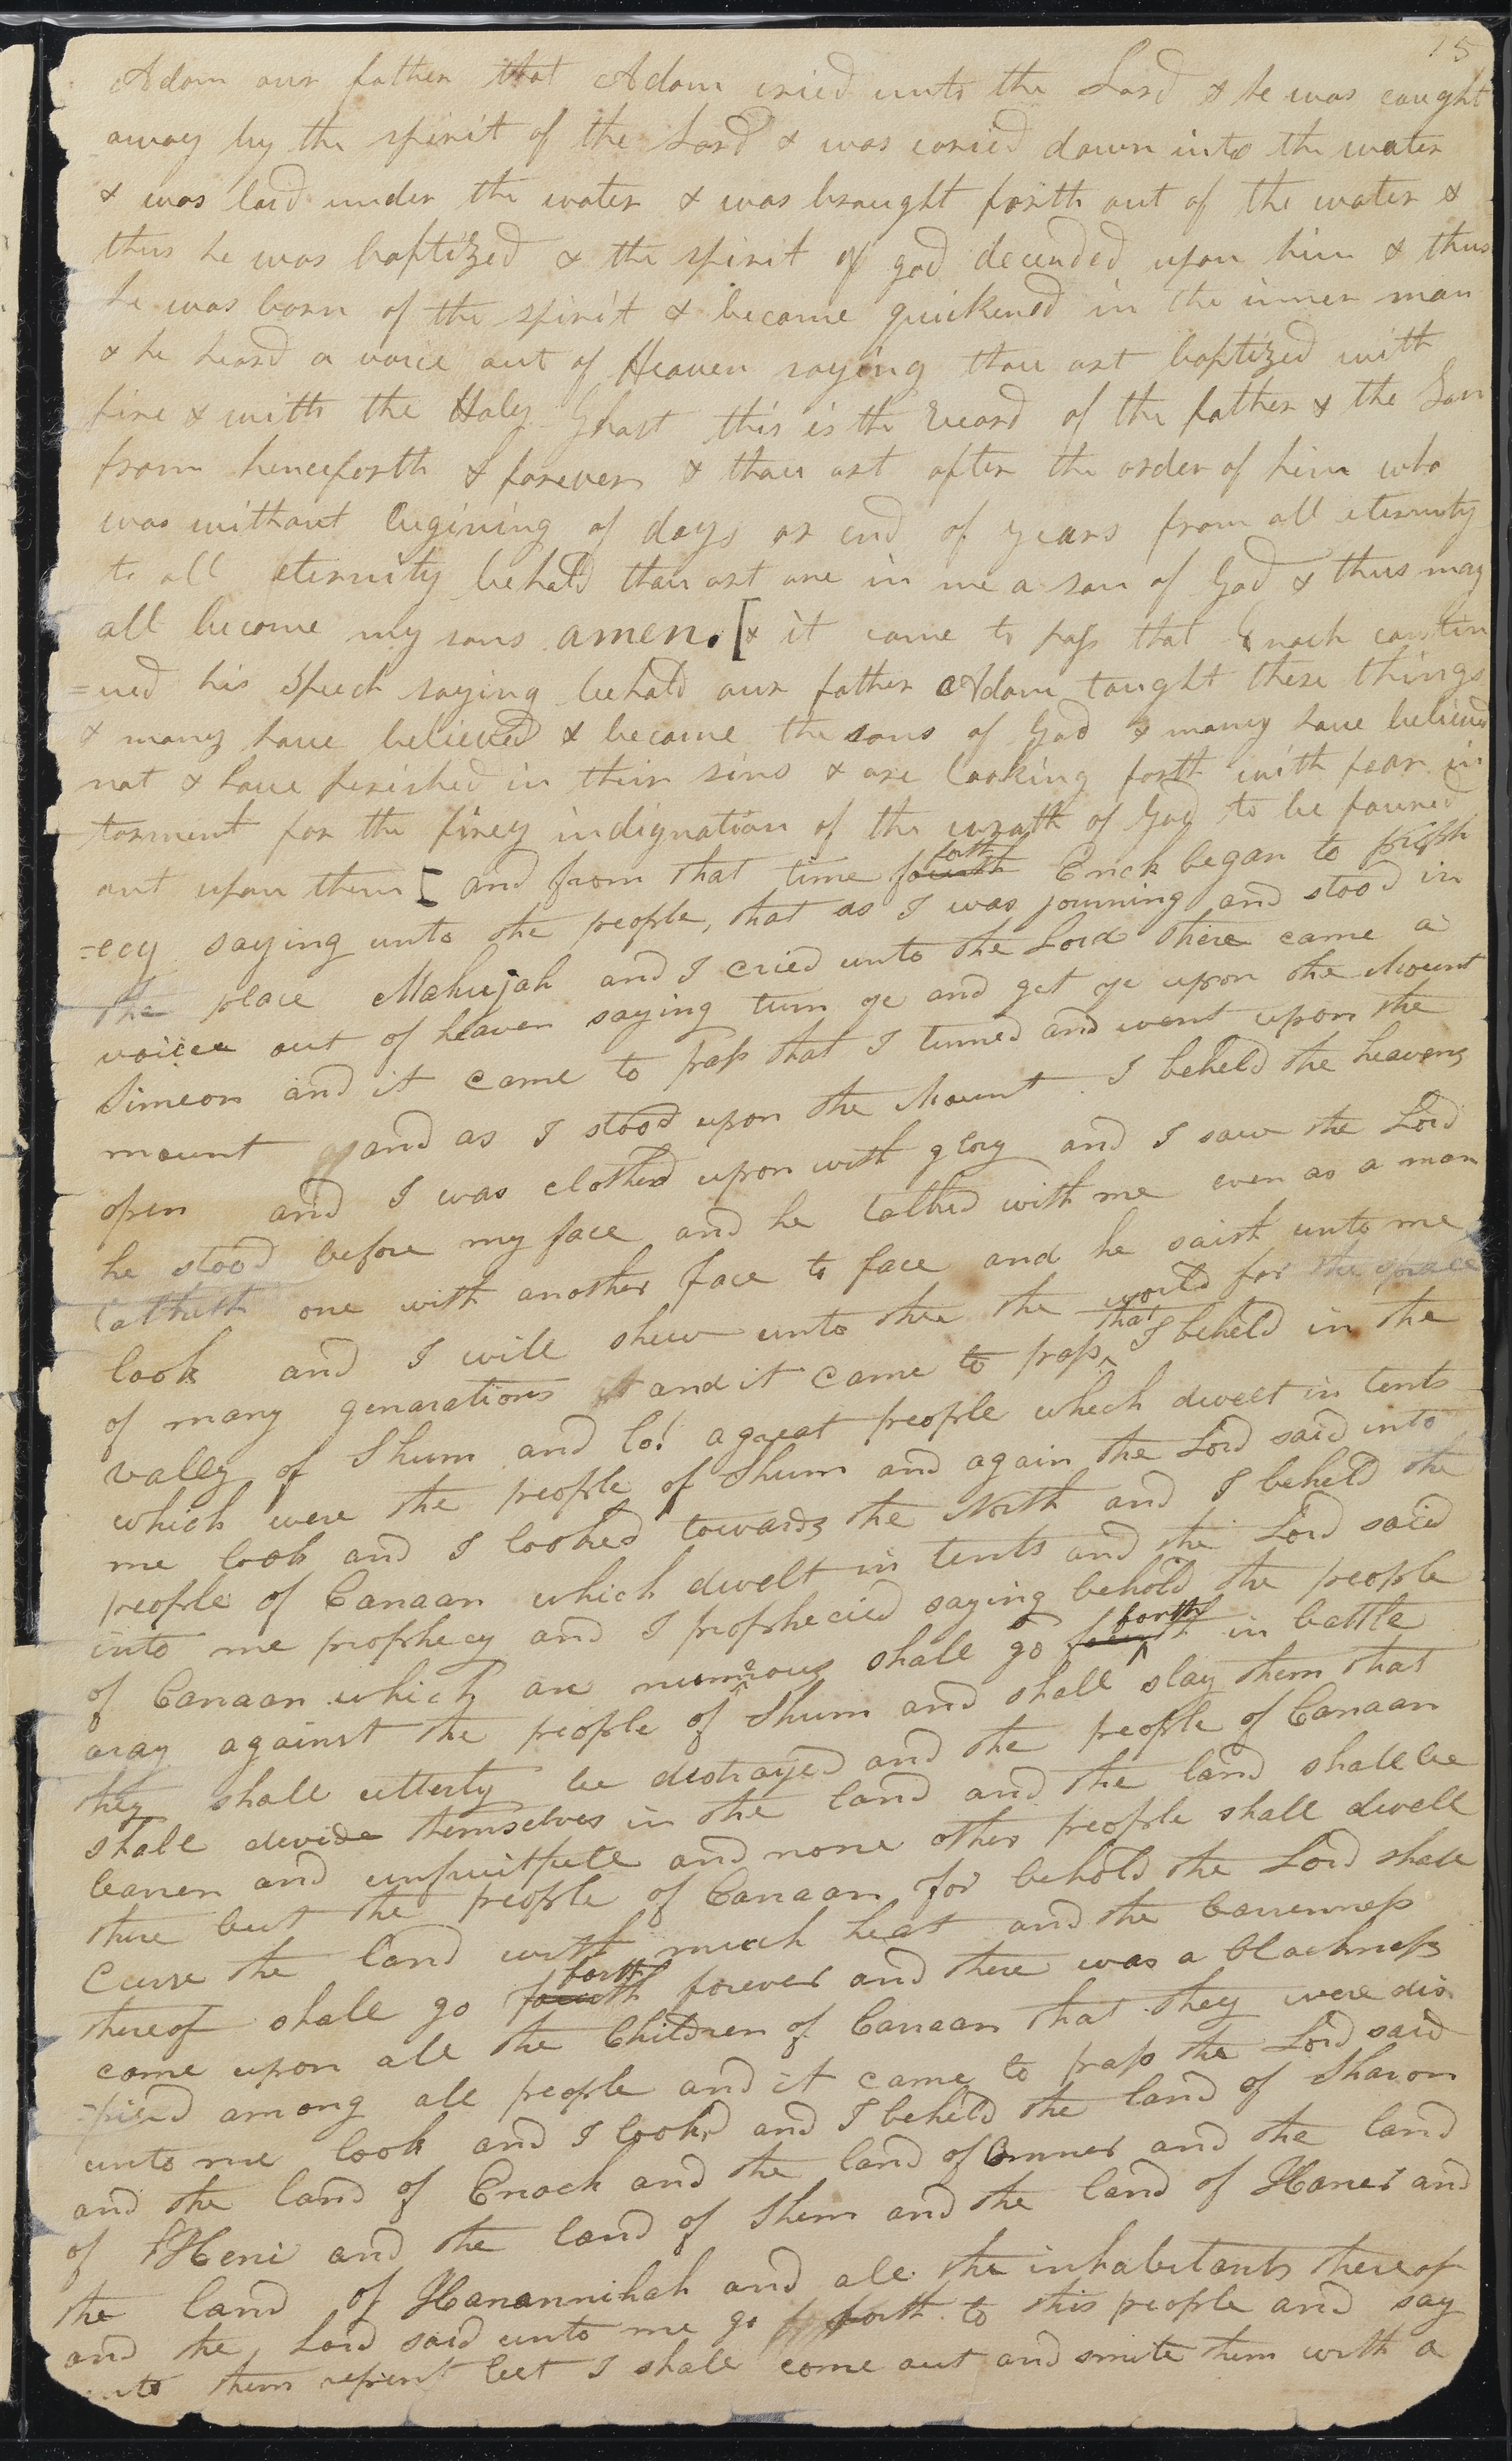 15
Adam our father that Adam cried unto the Lord & he was caught
away by the spirit of the Lord & was caried down into the water
& was laid under the water & was brought forth out of the water &
thus he was baptized & the spirit of god decended upon him & thus
he was born of the spirit & became quickened in the inner man
& he heard a voice out of Heaven saying thou art baptized with
fire & with the Holy Ghost this is the record of the father & the Son
from henceforth & forever & thou art after the order of him who
was without begining of days or end of years from all eternity
to all eternity behold thou art one in me a son of God & thus may
all become my sons amen. [& it came to pass that Enoch contin
=ued his Speech saying behold our father Adam taught these things
& many have believed & become the sons of God & many have believed
not & have perished in their sins & are looking forth with fear in
torment for the firey indignation of the wrath of God to be poured
out upon them [ and from that time forth Enock began to proph
=ecy saying unto the people, that as I was journing and stood in
the place Mahujah and I cried unto the Lord there came a
voice out of heaven saying turn ye and get ye upon the Mount
Simeon and it came to pass that I turned and went upon the
mount and as I stood upon the Mount I beheld the heavens
open and I was clothed upon with glory and I saw the Lord
he stood before my face and he talked with me even as a man
talketh one with another face to face and he saith unto me
look and I will shew unto thee the world for the space
of many genarations and it came to pass that I beheld in the
vally of Shum and lo! a great people which dwelt in tents
which were the people of Shum and again the Lord said into
me look and I looked towards the North and I beheld the
people of Canaan which dwelt in tents and the Lord said
into me prophecy and I prophecied saying behold the people
of Canaan which are numerous shall go forth in battle
aray against the people of Shum and shall slay them that
they shall utterly be distroyed and the people of Canaan
shall devide themselves in the land and the land shall be
baren and unfruitfull and none other people shall dwell
there but the people of Canaan for behold the Lord shall
Curse the land with much heat and the barrenness
thereof shall go forth forever and there was a blackness
come upon all the Children of Canaan that they were dis
=pised among all people and it came to pass the Lord said
unto me look and I lookd and I beheld the land of Sharon
and the land of Enoch and the land of Omner and the land
of Heni and the land of Shem and the land of Haner and
the land of Hanannihah and all the inhabitants thereof
and the Lord said unto me go forth to this people and say
unto them repent lest I shall come out and smite them with a